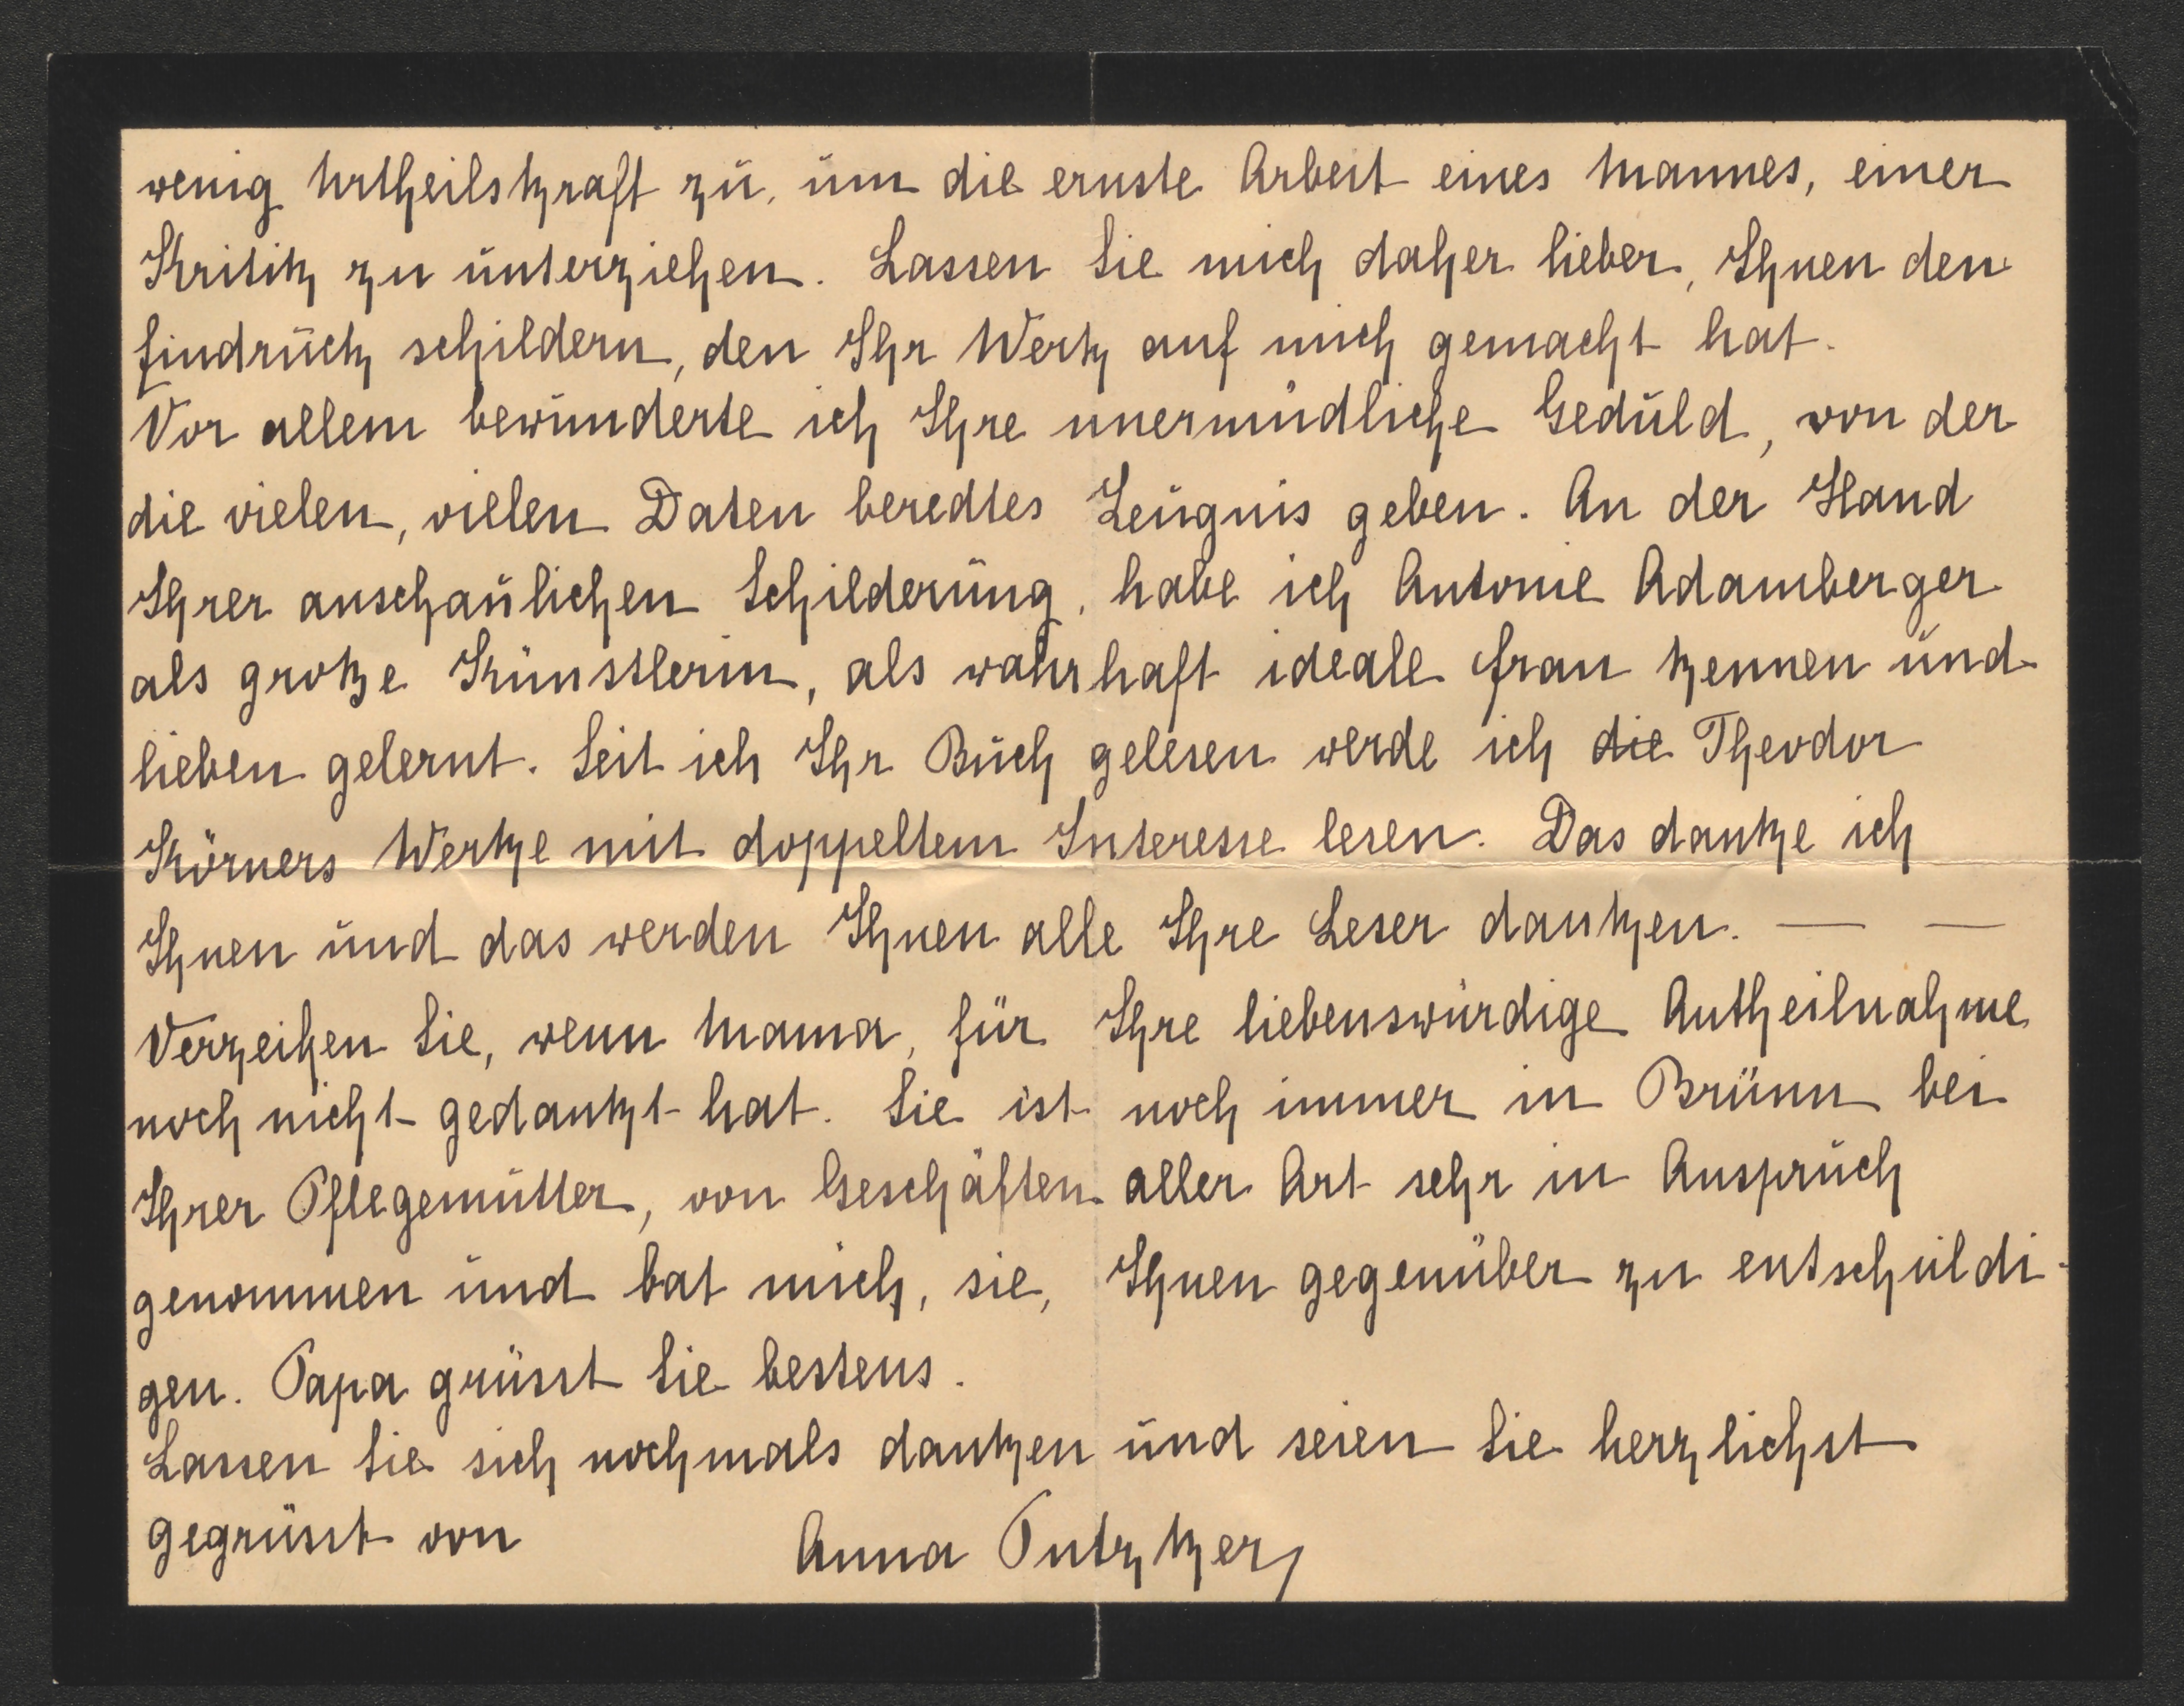 wenig Urtheilskraft zu, um die ernste Arbeit eines Mannes, einer
Kritik zu unterziehen. Lassen Sie mich daher lieber, Ihnen den
Eindruck schildern, den Ihr Werk auf mich gemacht hat.
Vor allem bewunderte ich Ihre unermüdliche Geduld, von der
die vielen, vielen Daten beredtes Zeugnis geben. An der Hand
Ihrer anschaulichen Schilderung, habe ich Antonie Adamberger
als große Künstlerin, als wahrhaft ideale Frau kennen und
lieben gelernt. Seit ich Ihr Buch gelesen werde ich die Theodor
Körners Werke mit doppeltem Interesse lesen. Das danke ich
Ihnen und das werden Ihnen alle Ihre Leser danken. — —
Verzeihen Sie, wenn Mama, für Ihre liebenswürdige Antheilnahme
noch nicht gedankt hat. Sie ist noch immer in Brünn bei
Ihrer Pflegemutter, von Geschäften aller Art sehr in Anspruch
genommen und bat mich, sie, Ihnen gegenüber zu entschuldi-
gen. Papa grüsst Sie bestens.
Lassen Sie sich nochmals danken und seien Sie herzlichst
gegrüsst von Anna Putzker